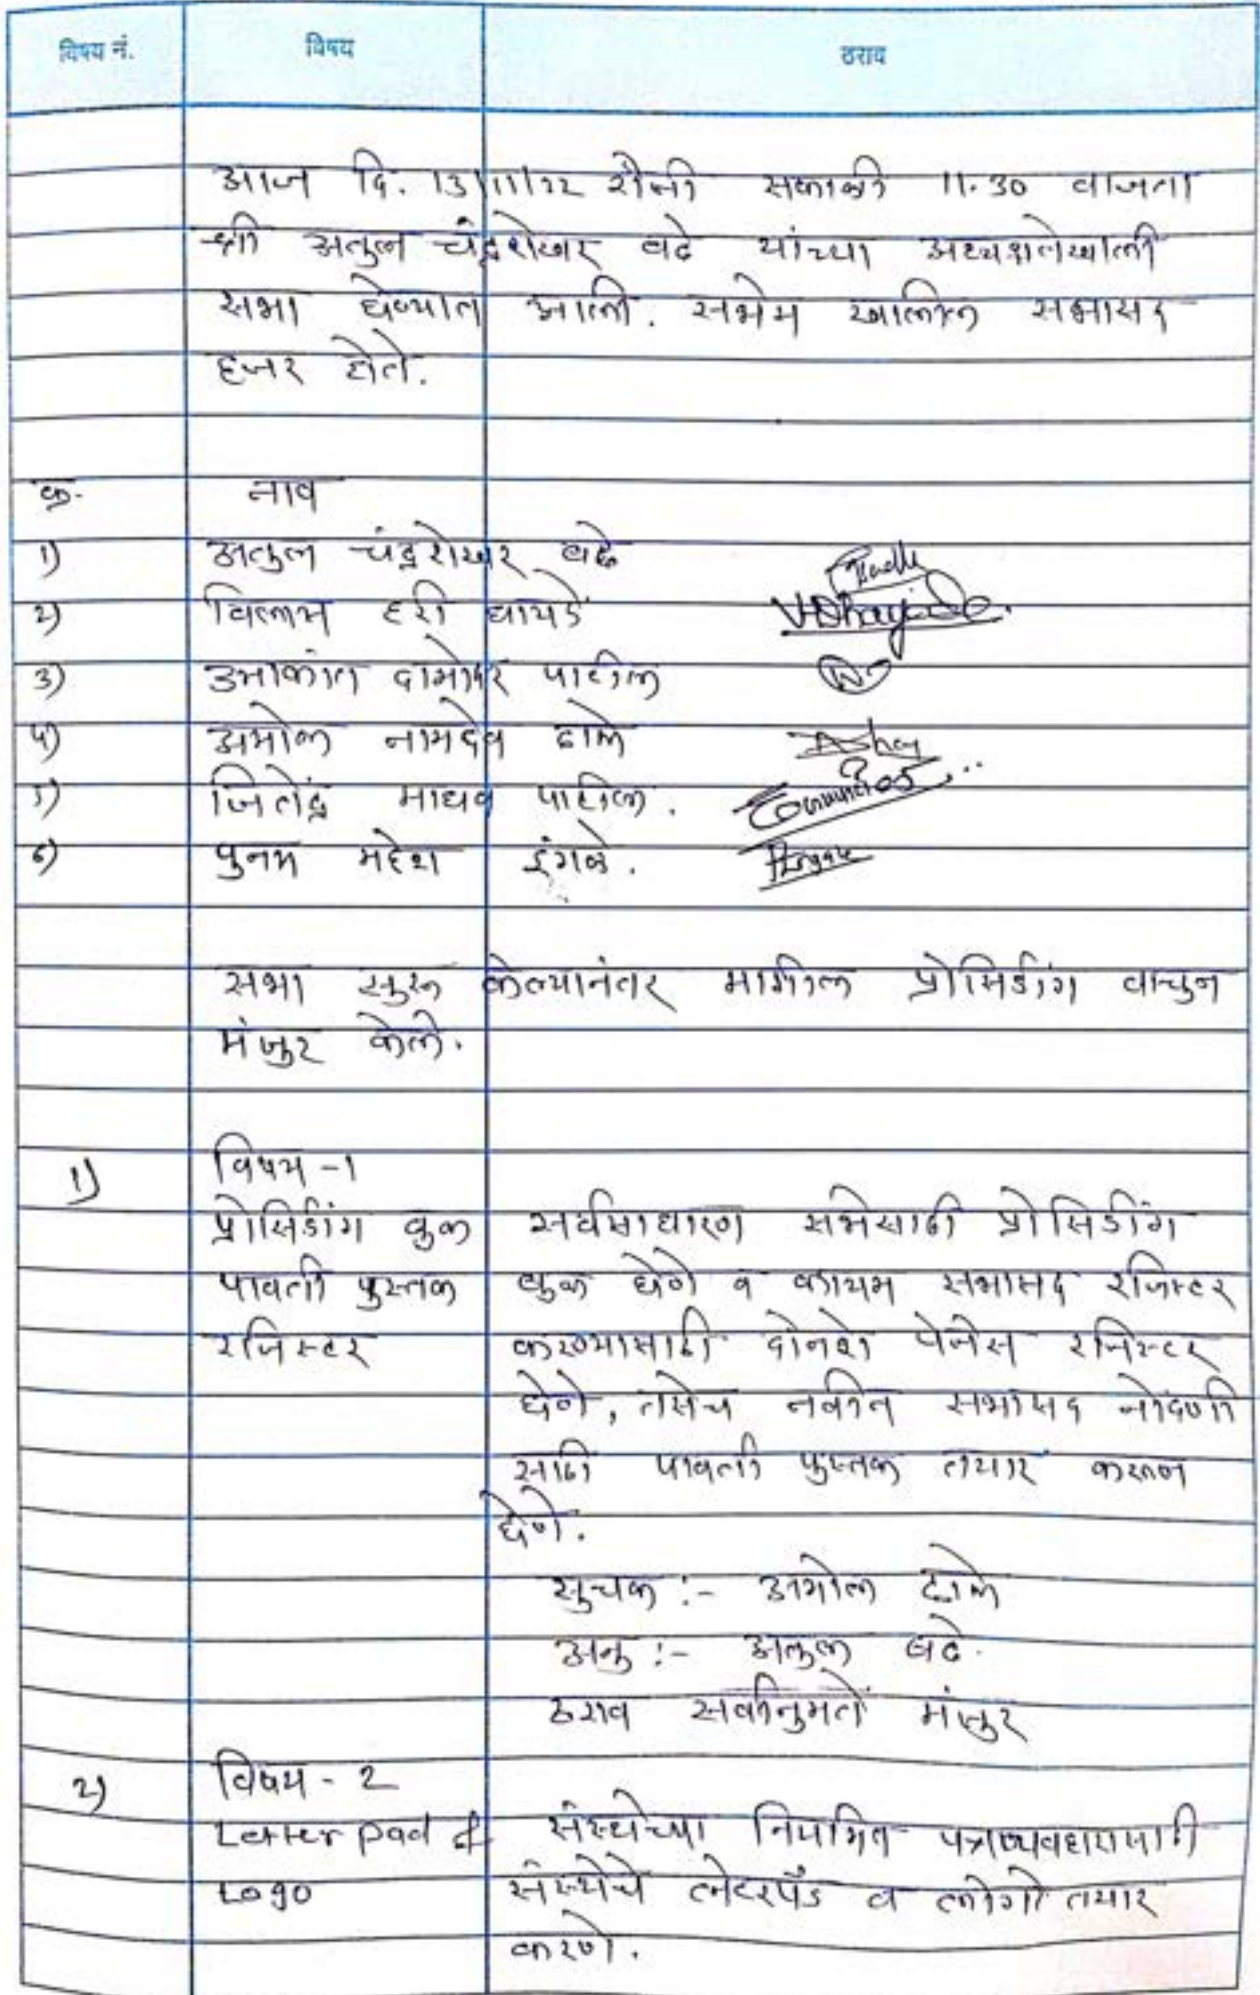 विषय नं. विषय ठराव
आज दि. 13/11/22 रोजी सकाळी 11.30 वाजता
श्री अतुल चंद्रशेखर वढे यांच्या अध्यक्षतेखाली
सभा घेण्यात आली. सभेस खालील सभासद
हजर होते.
क्र. नाव
1) अतुल चंद्रशेखर वढे
2) विलास हरी धायडे
3) उमाकांत दामोदर पाटील
4) अमोल नामदेव ढाके
5) जितेंद्र माधव पाटील.
6) पुनम महेश इंगळे.
सभा सुरू केल्यानंतर मागील प्रोसिडींग वाचुन
मंजुर केले.
1) विषय -1
प्रोसिडींग बुक सर्वसाधारण सभेसाठी प्रोसिडींग
पावती पुस्तक बुक घेणे व कायम सभासद रजिस्टर
रजिस्टर करण्यासाठी दोनशे पेजेस रजिस्टर
घेणे, तसेच नवीन सभासद नोंदणी
साठी पावती पुस्तक तयार करून
घेणे.
सुचक :- अमोल ढाके
अनु :- अतुल वढे.
ठराव सर्वानुमते मंजुर
2) विषय - 2
Letter pad & संस्थेच्या नियमित पत्रव्यवहारासाठी
Logo संस्थेचे लेटरपॅड व लोगो तयार
करणे.